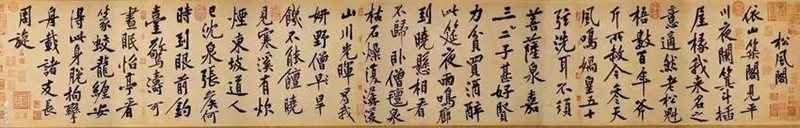 松風閣
依山築閣見平
川夜闌箕斗插
屋椽我来名之
意適然老松魁
梧數百年斧
斤所赦今參天
風鳴媧皇五十
弦洗耳不須
菩薩泉嘉
二三子甚好賢
力貧買酒醉
此筵夜雨鳴廊
到曉懸相看
不歸臥僧氊泉
枯石燥復潺湲
山川光暉為我
妍野僧早旱
饑不能饘曉
見寒溪有炊
煙東坡道人
已沈泉張侯何
時到眼前釣
臺驚濤可
晝眠怡亭看
篆蛟龍纏安
得此身脫拘攣
舟載諸友長
周旋